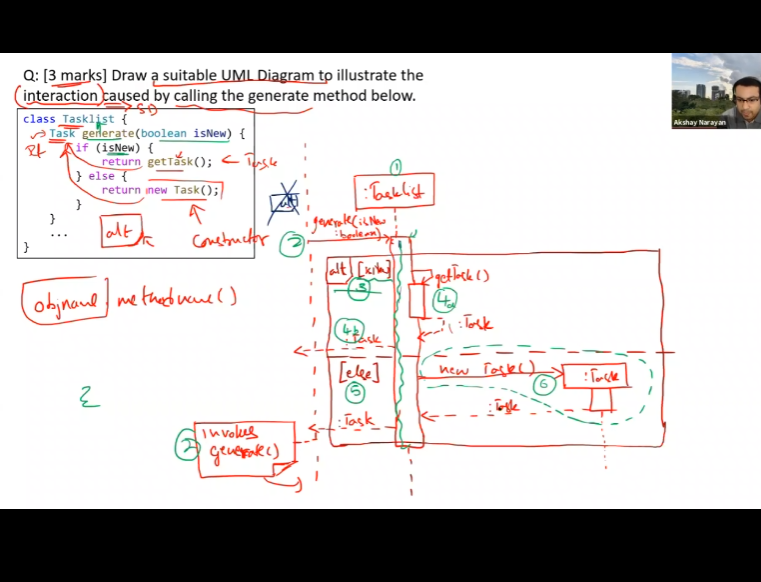 Q: [3 marks] Draw a suitable UML Diagram to illustrate the
interaction caused by calling the generate method below.
SD
class Tasklist {
Task generate(boolean isNew) {
if (isNew) {
return getTask();
} else {
return new Task();
}
}
...
}
Task
constructor
alt
alt
objname.methodname()
Akshay Narayan
1
:TaskList
generate(isNew
:boolean)
2
alt
3
getTask()
4a
:Task
4b
:Task
[else]
5
new Task()
6
:Task
:Task
:Task
2
invokes
generate()